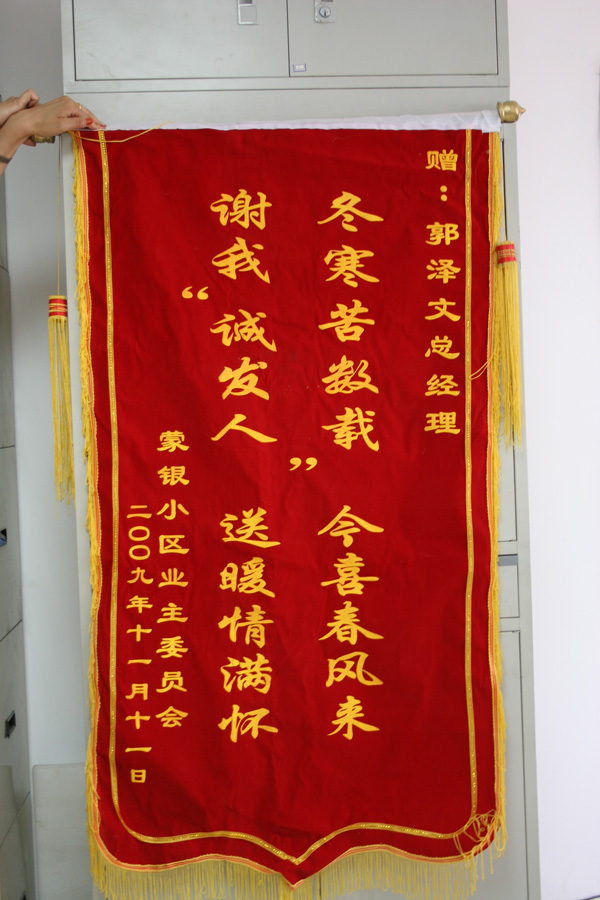 赠：郭泽文总经理
冬寒苦数载 今喜春风来
谢我“诚发人”送暖情满怀
蒙银小区业主委员会
二〇〇九年十一月十一日